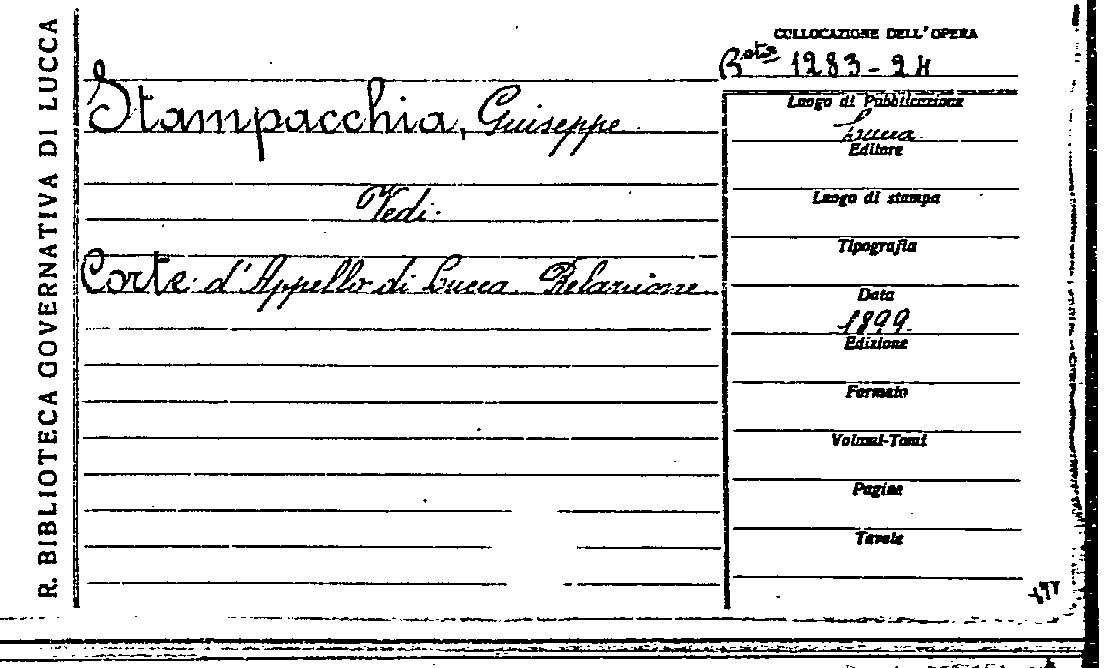 R. BIBLIOTECA GOVERNATIVA DI LUCCA
Stampacchia, Guiseppe
Vedi:
Corte d'Appello di Lucca Relazione
COLLOCAZIONE DELL'OPERA
Bsta 1283-24
Luogo di Pubblicazione
Lucca
Editore
Luogo di stampa
Tipografia
Data
1899.
Edizione
Formato
Volumi-Tomi
Pagine
Tavole